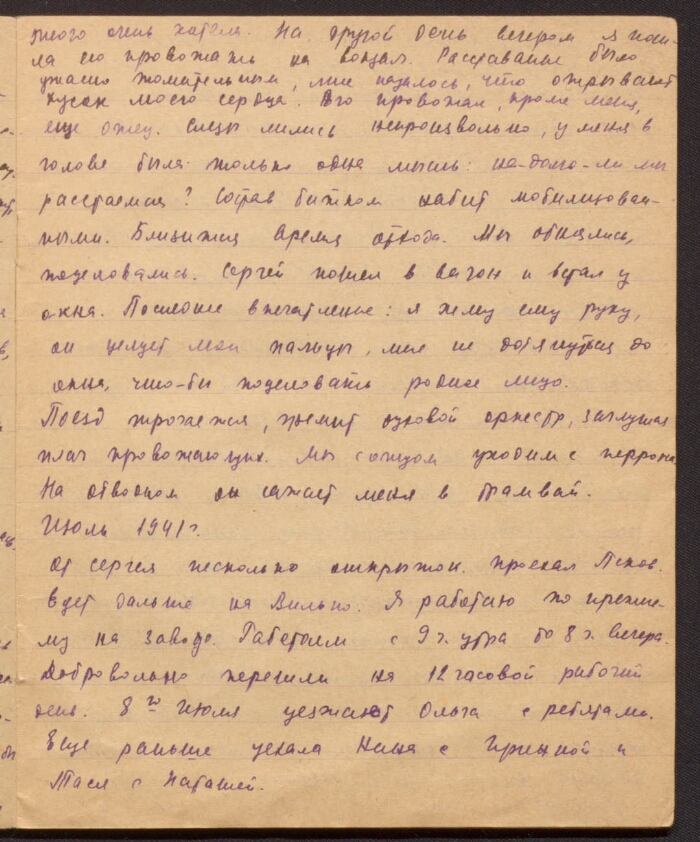 этого очень хотела. На другой день вечером я пош-
ла его провожать на вокзал. Расставание было
ужасно томительным, мне казалось, что отрывают
кусок моего сердца. Его провожал, кроме меня,
еще отец. Слезы лились непроизвольно, у меня в
голове была только одна мысль: на-долго-ли мы
расстаемся? Состав битком набит мобилизован-
ными. Близится время отхода. Мы обнялись,
поцеловались. Сергей пошел в вагон и встал у
окна. Последнее впечатление: я жму ему руку,
он целует мои пальцы, мне не дотянуться до
окна, что-бы поцеловать родное лицо.
Поезд трогается, гремит духовой оркестр, заглушая
плач провожающих. Мы с отцом уходим с перрона
На Обводном он сажает меня в трамвай.
Июль 1941 г.
От Сергея несколько открыток. Проехал Псков.
Едет дальше на Вильно. Я работаю по прежне-
му на заводе. Работаем с 9 ч. утра до 8 ч. вечера.
Добровольно перешли на 12 часовой рабочий
день. 8го Июля уезжают Ольга с ребятами.
Еще раньше уехала с и
Тася с Наташей.